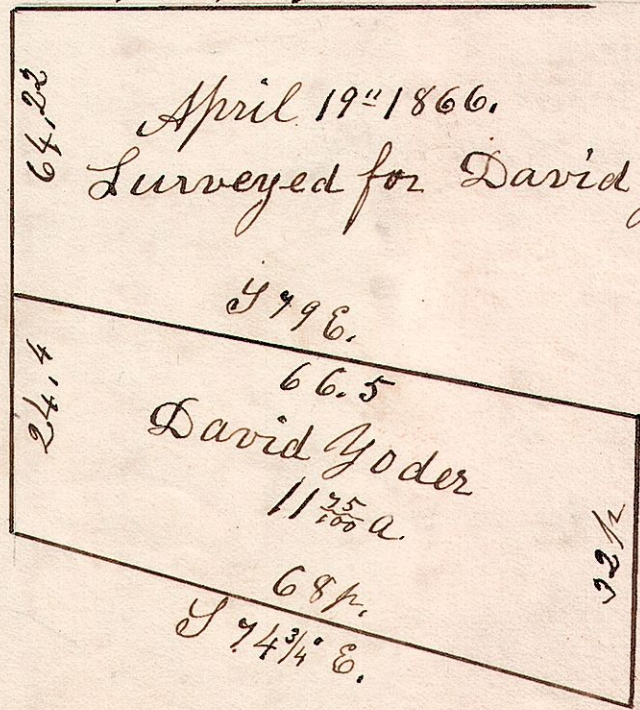 64,22
April 19" 1866.
Surveyed for David
S 79 E.
66.5
24.4
David Yoder
11 75/100 a.
32 p
68 p.
S 74 3/4° E.